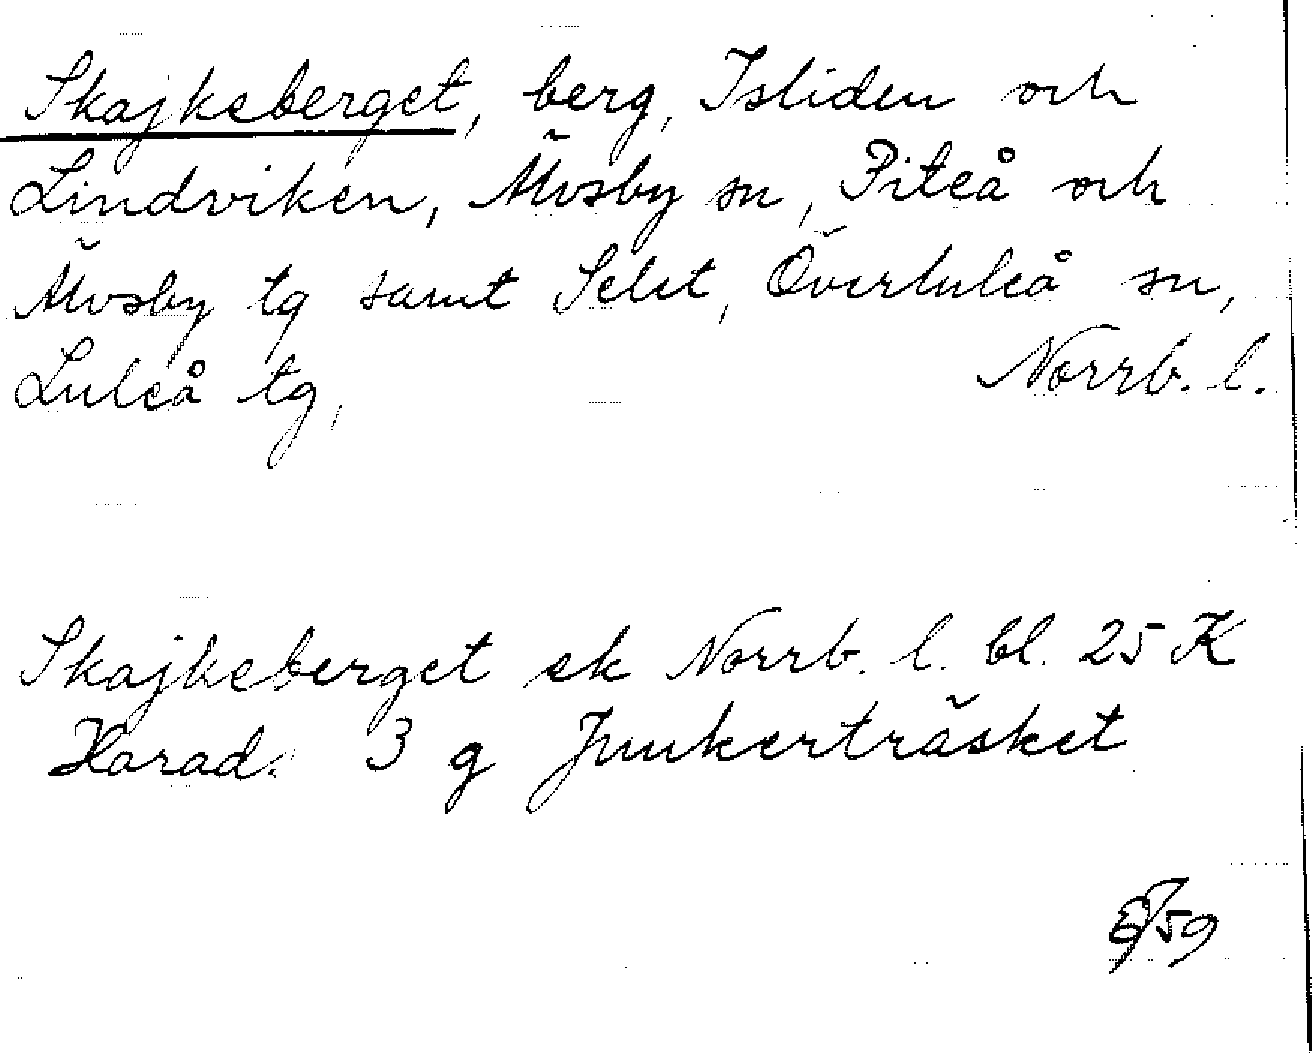 Skajkeberget, berg, Isliden och
Lindviken, Älvsby sn, Piteå och
Älvsby tg samt Selet, Överluleå sn,
Luleå tg, Norrb. l.
Skajkeberget ek Norrb. l. bl. 25 K
Harad. 3 g Junkerträsket